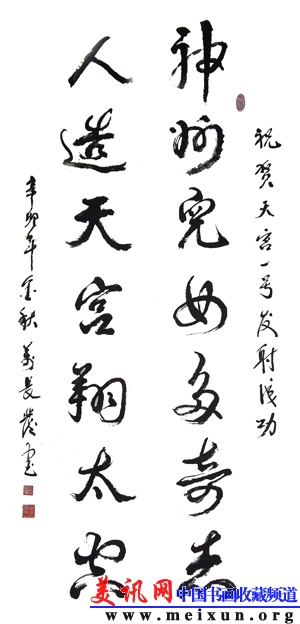 祝贺天宫一号发射成功
神州兒女多奇志
人造天宫翔太空
辛卯年金秋萬長發書
美讯网 中国书画收藏频道
www.meixun.org